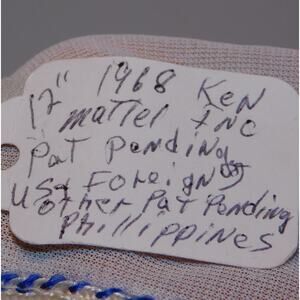 12" 1968 Ken
Mattel Inc
Pat Pending
USA Foreign
other Pat Pending
Phillippines